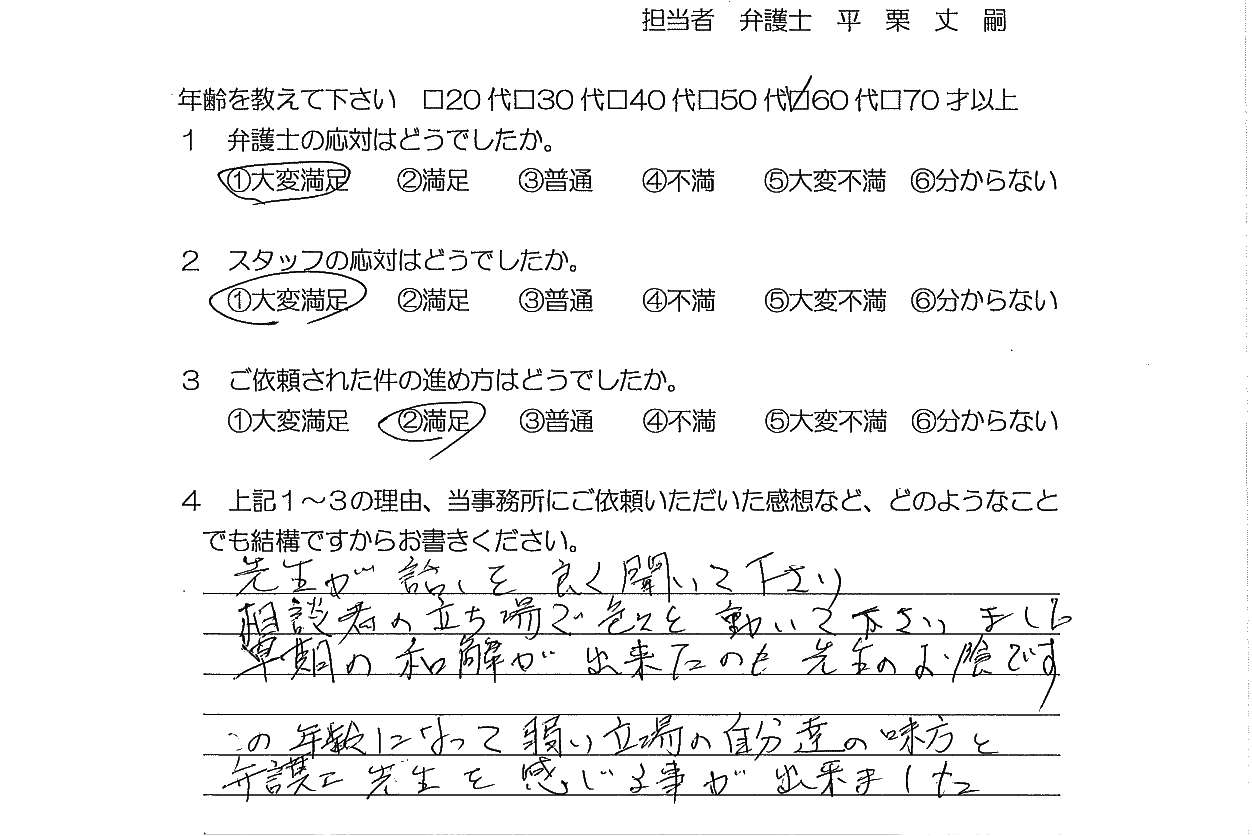 担当者 弁護士 平 栗 丈 嗣
年齢を教えて下さい □20代□30代□40代□50代☑60代□70才以上
1 弁護士の応対はどうでしたか。
①大変満足 ②満足 ③普通 ④不満 ⑤大変不満 ⑥分からない
2 スタッフの応対はどうでしたか。
①大変満足 ②満足 ③普通 ④不満 ⑤大変不満 ⑥分からない
3 ご依頼された件の進め方はどうでしたか。
①大変満足 ②満足 ③普通 ④不満 ⑤大変不満 ⑥分からない
4 上記1～3の理由、当事務所にご依頼いただいた感想など、どのようなこと
でも結構ですからお書きください。
先生が話しを良く聞いて下さり
相談者の立ち場で色々と動いて下さいました
早期の和解が出来たのも先生のお陰です
この年齢になって弱い立場の自分達の味方と
弁護士先生を感じる事が出来ました